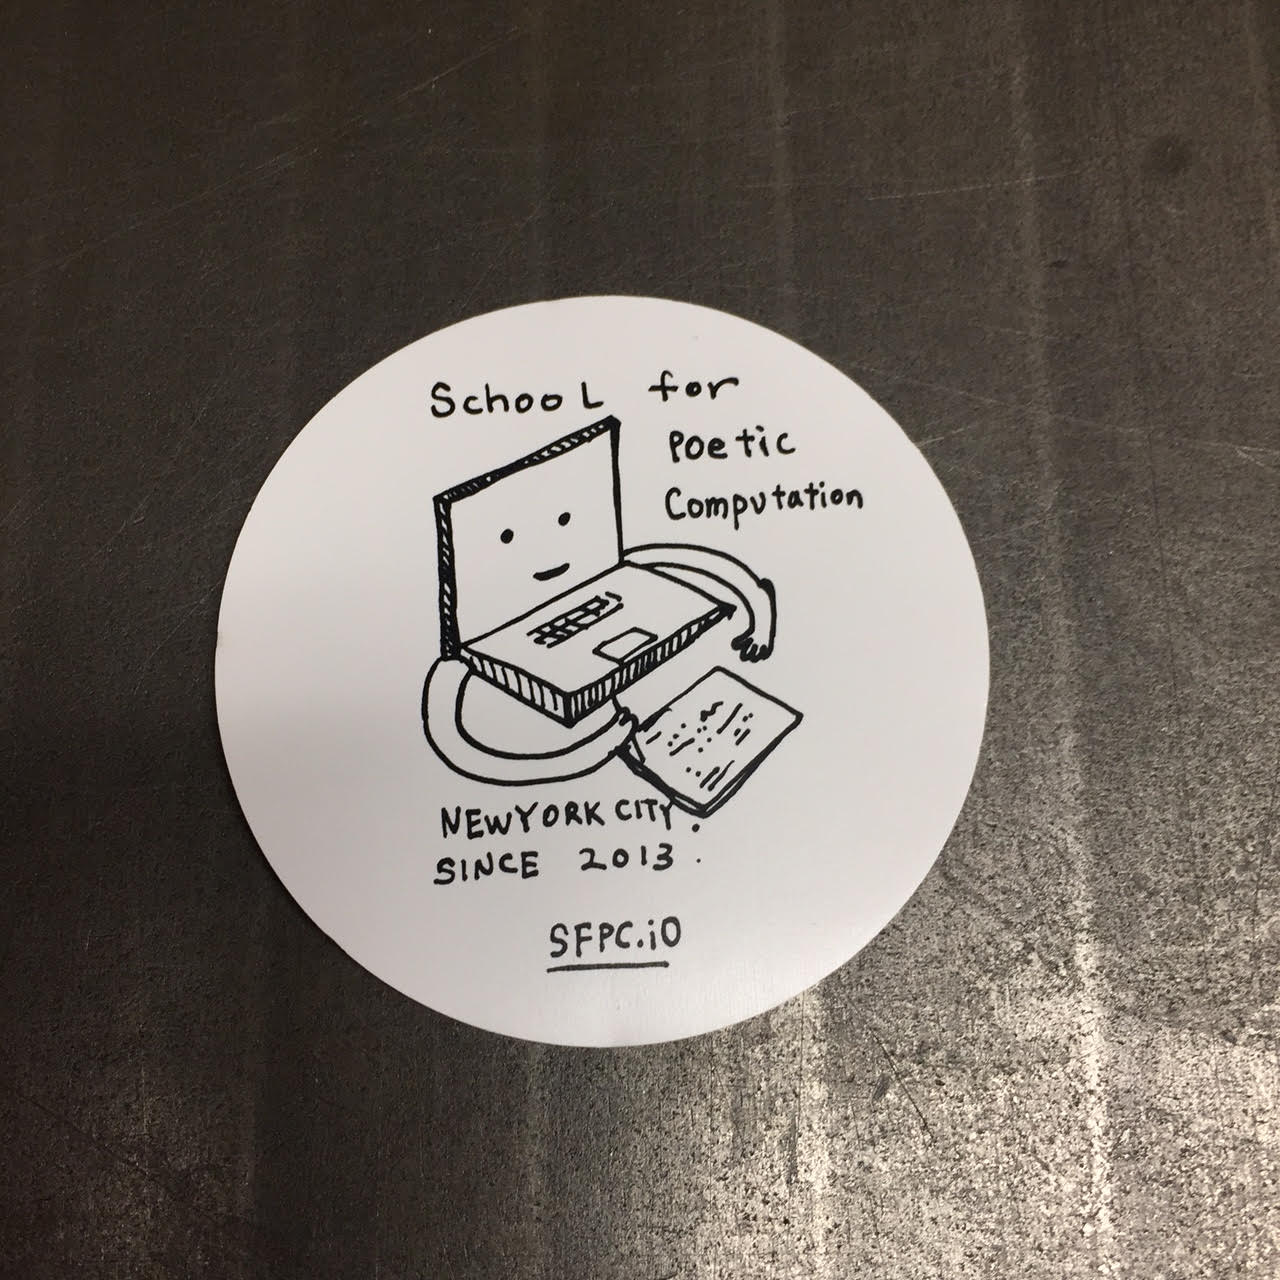 School for
Poetic
Computation
NEW YORK CITY.
SINCE 2013.
SFPC.iO